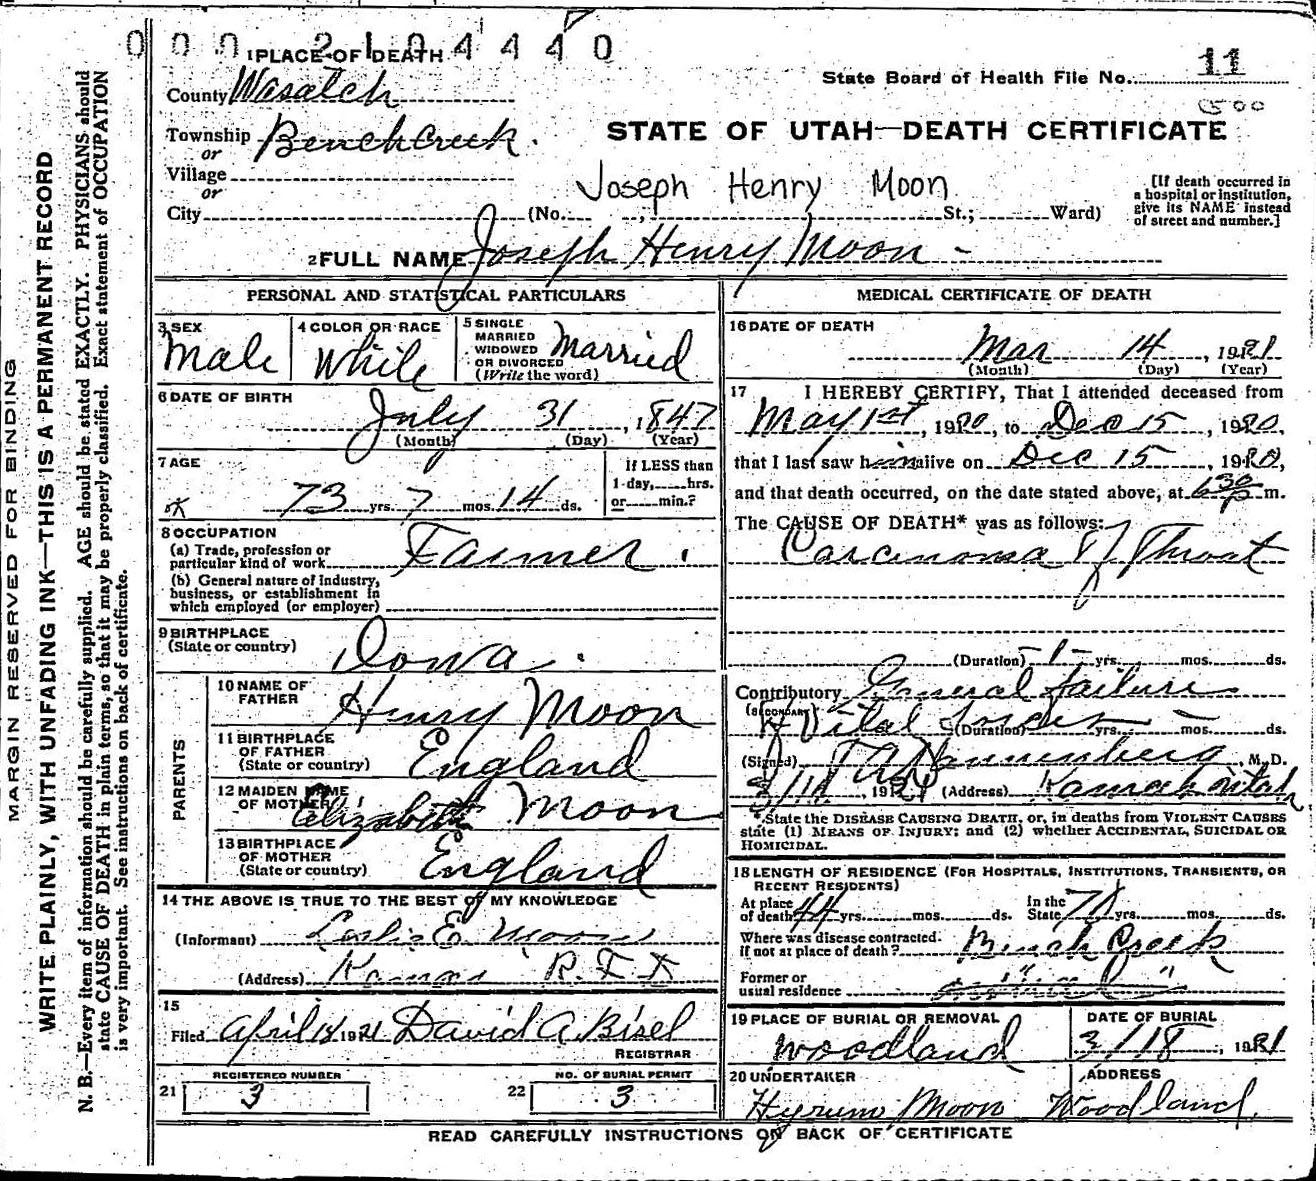 000 2104440
1 PLACE OF DEATH
State Board of Health File No. 11
1500
County Wasatch
STATE OF UTAH—DEATH CERTIFICATE
Township Benchcreek.
or
Village
or
Joseph Henry Moon
City (No. , St.; Ward)
[If death occurred in
a hospital or institution,
give its NAME instead
of street and number.]
2 FULL NAME Joseph Henry Moon -
PERSONAL AND STATISTICAL PARTICULARS
3 SEX Male
4 COLOR OR RACE White
5 SINGLE
MARRIED
WIDOWED
OR DIVORCED
(Write the word) Married
6 DATE OF BIRTH
July 31, 1847
(Month) (Day) (Year)
7 AGE
73 yrs. 7 mos. 14 ds.
If LESS than
1 day, hrs.
or min.?
8 OCCUPATION
(a) Trade, profession or
particular kind of work Farmer.
(b) General nature of industry,
business, or establishment in
which employed (or employer)
9 BIRTHPLACE
(State or country) Iowa.
PARENTS
10 NAME OF
FATHER Henry Moon
11 BIRTHPLACE
OF FATHER
(State or country) England
12 MAIDEN NAME
OF MOTHER Elizabeth Moon
13 BIRTHPLACE
OF MOTHER
(State or country) England
14 THE ABOVE IS TRUE TO THE BEST OF MY KNOWLEDGE
(Informant) Leslie E. Moon
(Address) Kamas R.F.D.
15
Filed April 18 1921 David A. Bisel
REGISTRAR
21 REGISTERED NUMBER 3
22 NO. OF BURIAL PERMIT 3
MEDICAL CERTIFICATE OF DEATH
16 DATE OF DEATH
Mar 14, 1921
(Month) (Day) (Year)
17 I HEREBY CERTIFY, That I attended deceased from
May 1st, 1920, to Dec 15, 1920,
that I last saw him alive on Dec 15, 1920,
and that death occurred, on the date stated above, at 6 30 P m.
The CAUSE OF DEATH* was as follows:
Carcinoma of Throat
(Duration) -1- yrs. mos. ds.
Contributory General failure
(SECONDARY) of Vital forces
(Duration) yrs. mos. ds.
(Signed) Dannenberg, M.D.
1921 (Address) Kamas Utah
*State the DISEASE CAUSING DEATH, or, in deaths from VIOLENT CAUSES
state (1) MEANS OF INJURY; and (2) whether ACCIDENTAL, SUICIDAL OR
HOMICIDAL.
18 LENGTH OF RESIDENCE (FOR HOSPITALS, INSTITUTIONS, TRANSIENTS, OR
RECENT RESIDENTS)
At place
of death 44 yrs. mos. ds.
In the
State yrs. mos. ds.
Where was disease contracted.
if not at place of death? Bench Creek
Former or
usual residence
19 PLACE OF BURIAL OR REMOVAL
Woodland
DATE OF BURIAL
3/18, 1921
20 UNDERTAKER
Hyrum Moon
ADDRESS
Woodland.
READ CAREFULLY INSTRUCTIONS ON BACK OF CERTIFICATE
MARGIN RESERVED FOR BINDING
WRITE PLAINLY, WITH UNFADING INK—THIS IS A PERMANENT RECORD
N. B.—Every item of information should be carefully supplied. AGE should be stated EXACTLY. PHYSICIANS should
state CAUSE OF DEATH in plain terms, so that it may be properly classified. Exact statement of OCCUPATION
is very important. See instructions on back of certificate.